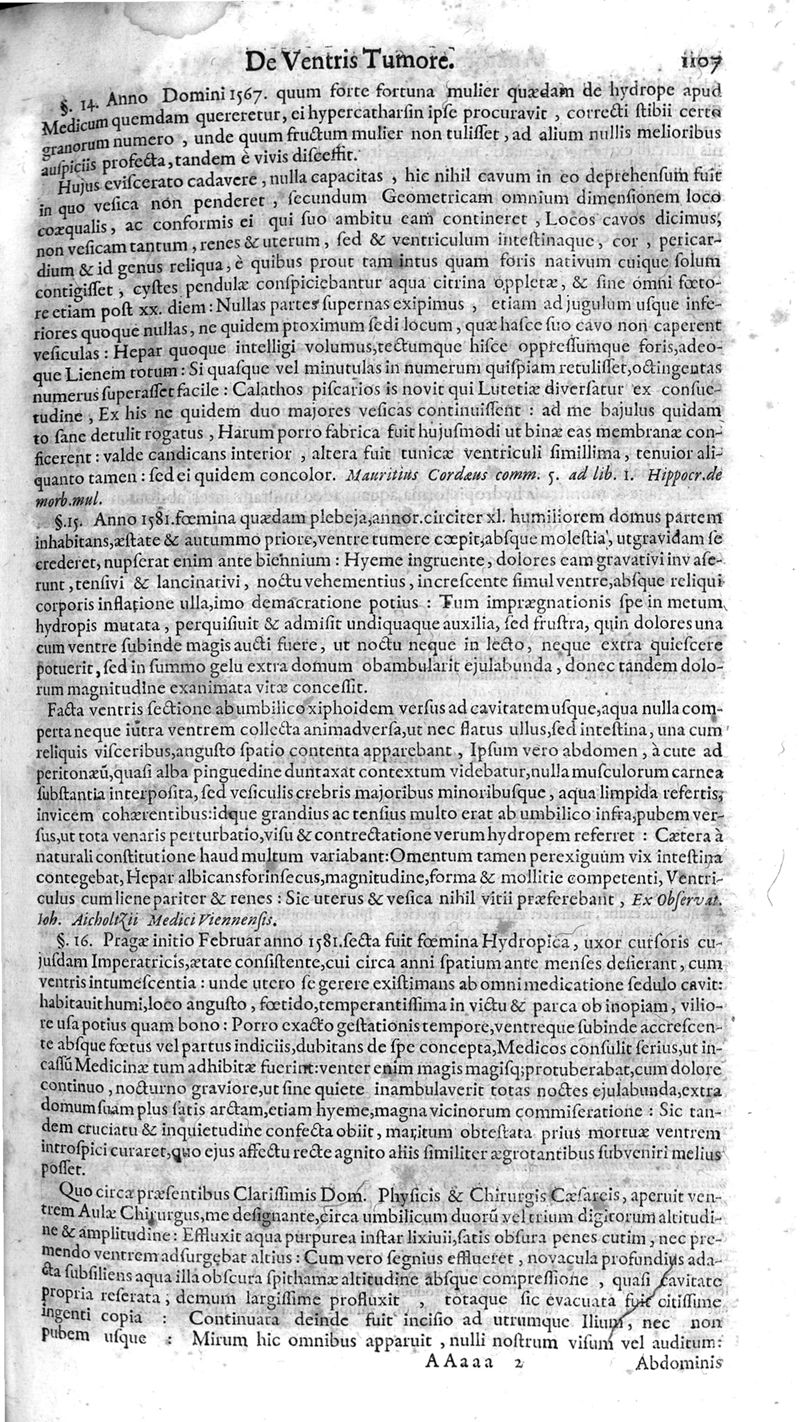 De Ventris Tumore.
1107
§. 14. Anno Domini 1567. quum forte fortuna mulier quædam de hydrope apud
Medicum quemdam quereretur, ei hypercatharſin ipſe procuravit, correcti ſtibii certo
granorum numero, unde quum fructum mulier non tuliſſet, ad alium nullis melioribus
auſpiciis profecta, tandem è vivis diſceſſit.
Hujus eviſcerato cadavere, nulla capacitas, hic nihil cavum in eo deprehenſum fuit
in quo veſica non penderet, ſecundum Geometricam omnium dimenſionem loco
coæqualis, ac conformis ei qui ſuo ambitu eam contineret, Locos cavos dicimus,
non veſicam tantum, renes & uterum, ſed & ventriculum inteſtinaque, cor, pericar-
dium & id genus reliqua, è quibus prout tam intus quam foris nativum cuique ſolum
contigiſſet, cyſtes pendulæ conſpiciebantur aqua citrina oppletæ, & ſine omni fœto-
re etiam poſt xx. diem: Nullas partes ſupernas exipimus, etiam ad jugulum uſque infe-
riores quoque nullas, ne quidem proximum ſedi locum, quæ haſce ſuo cavo non caperent
veſiculas: Hepar quoque intelligi volumus, tectumque hiſce oppreſſumque foris, adeo-
que Lienem totum: Si quaſque vel minutulas in numerum quiſpiam retuliſſet, octingentas
numerus ſuperaſſet facile: Calathos piſcarios is novit qui Lutetiæ diverſatur ex conſue-
tudine, Ex his ne quidem duo majores veſicas continuiſſent: ad me bajulus quidam
to ſane detulit rogatus, Harum porro fabrica fuit hujuſmodi ut binæ eas membranæ con-
ficerent: valde candicans interior, altera fuit tunicæ ventriculi ſimillima, tenuior ali-
quanto tamen: ſed ei quidem concolor. Mauritius Cordæus comm. 5. ad lib. 1. Hippocr. de
morb. mul.
§. 15. Anno 1581. fœmina quædam plebeja, annor. circiter xl. humiliorem domus partem
inhabitans, æſtate & autummo priore, ventre tumere cœpit, abſque moleſtia, ut gravidam ſe
crederet, nupſerat enim ante biennium: Hyeme ingruente, dolores eam gravativi invaſe-
runt, tenſivi & lancinativi, noctu vehementius, increſcente ſimul ventre, abſque reliqui
corporis inflatione ulla, imo demacratione potius: Tum imprægnationis ſpe in metum
hydropis mutata, perquiſiuit & admiſit undiquaque auxilia, ſed fruſtra, quin dolores una
cum ventre ſubinde magis aucti fuere, ut noctu neque in lecto, neque extra quieſcere
potuerit, ſed in ſummo gelu extra domum obambularit ejulabunda, donec tandem dolo-
rum magnitudine exanimata vitæ conceſſit.
Facta ventris ſectione ab umbilico xiphoidem verſus ad cavitatem uſque, aqua nulla com-
perta neque iutra ventrem collecta animadverſa, ut nec flatus ullus, ſed inteſtina, una cum
reliquis viſceribus, anguſto ſpatio contenta apparebant, Ipſum vero abdomen, à cute ad
peritonæũ, quaſi alba pinguedine duntaxat contextum videbatur, nulla muſculorum carnea
ſubſtantia interpoſita, ſed veſiculis crebris majoribus minoribuſque, aqua limpida refertis,
invicem cohærentibus: idque grandius ac tenſius multo erat ab umbilico infra, pubem ver-
ſus, ut tota venaris perturbatio, viſu & contrectatione verum hydropem referret: Cætera à
naturali conſtitutione haud multum variabant: Omentum tamen perexiguum vix inteſtina
contegebat, Hepar albicans forinſecus, magnitudine, forma & mollitie competenti, Ventri-
culus cum liene pariter & renes: Sic uterus & veſica nihil vitii præferebant, Ex Obſervat.
Ioh. Aicholtzii Medici Viennenſis.
§. 16. Pragæ initio Februar anno 1581. ſecta fuit fœmina Hydropica, uxor curſoris cu-
juſdam Imperatricis, ætate conſiſtente, cui circa anni ſpatium ante menſes deſierant, cum
ventris intumeſcentia: unde utero ſe gerere exiſtimans ab omni medicatione ſedulo cavit:
habitauit humi, loco anguſto, fœtido, temperantiſſima in victu & parca ob inopiam, vilio-
re uſa potius quam bono: Porro exacto geſtationis tempore, ventreque ſubinde accreſcen-
te abſque fœtus vel partus indiciis, dubitans de ſpe concepta, Medicos conſulit ſerius, ut in-
caſſũ Medicinæ tum adhibitæ fuerint: venter enim magis magiſq; protuberabat, cum dolore
continuo, nocturno graviore, ut ſine quiete inambulaverit totas noctes ejulabunda, extra
domum ſuam plus ſatis arctam, etiam hyeme, magna vicinorum commiſeratione: Sic tan-
dem cruciatu & inquietudine confecta obiit, maritum obteſtata prius mortuæ ventrem
introſpici curaret, quo ejus affectu recte agnito aliis ſimiliter ægrotantibus ſubveniri melius
poſſet.
Quo circa præſentibus Clariſſimis Dom. Phyſicis & Chirurgis Cæſareis, aperuit ven-
trem Aulæ Chirurgus, me deſignante, circa umbilicum duorũ vel trium digitorum altitudi-
ne & amplitudine: Effluxit aqua purpurea inſtar lixiuii, ſatis obſura penes cutim, nec pre-
mendo ventrem adſurgebat altius: Cum vero ſegnius efflueret, novacula profundius ada-
cta ſubſiliens aqua illa obſcura ſpithamæ altitudine abſque compreſſione, quaſi cavitate
propria reſerata, demum largiſſime profluxit, totaque ſic evacuata fuit citiſſime
ingenti copia: Continuata deinde fuit inciſio ad utrumque Ilium, nec non
pubem uſque: Mirum hic omnibus apparuit, nulli noſtrum viſum vel auditum:
AAaaa 2
Abdominis